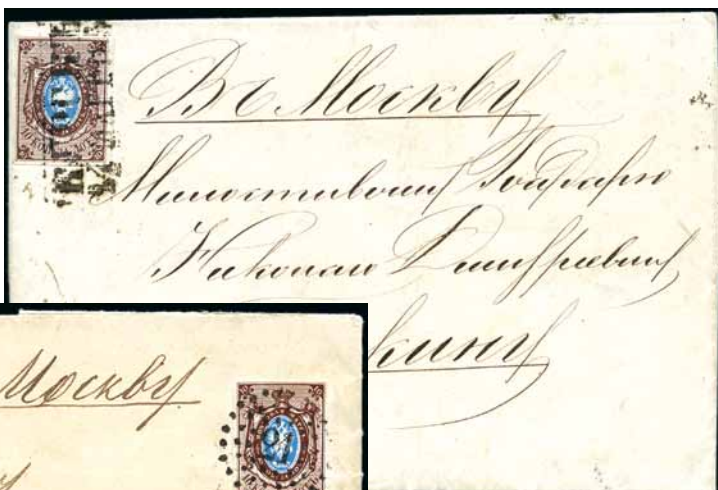 Въ Москву
Милостивому Государю
Николаю Дмитріевичу
кину
Москву